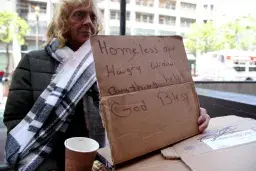 Homeless and
Hungry
anything helps
God Bless